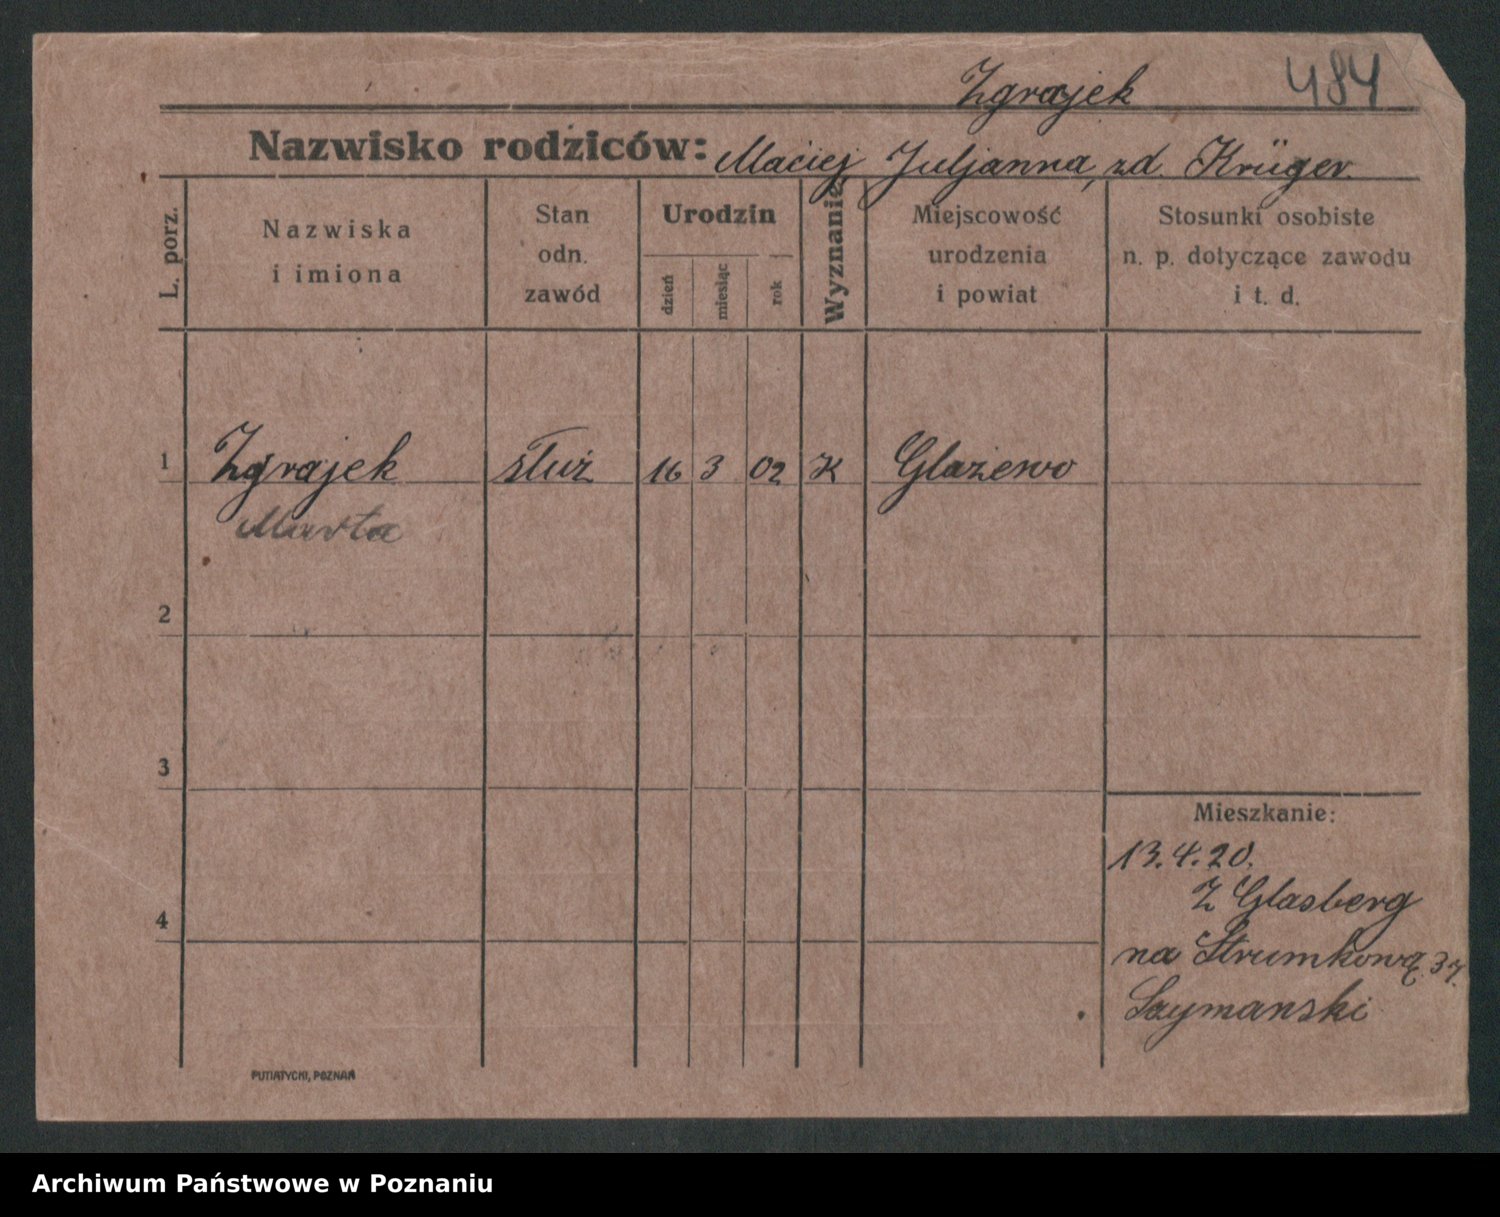 484
Zgrajek
Nazwisko rodziców: Maciej Juljanna, zd. Krüger
L. porz.
Nazwiska
i imiona
Stan
odn.
zawód
Urodzin
dzień
miesiąc
rok
Wyznanie
Miejscowość
urodzenia
i powiat
Stosunki osobiste
n. p. dotyczące zawodu
i t. d.
1 Zgrajek służ 16 3 02 K Glażewo
Marta
2
3
4
Mieszkanie:
13.4.20.
Z Glasberg
na Strumkową 37.
Szymanski
PUTIATYCKI, POZNAŃ
Archiwum Państwowe w Poznaniu